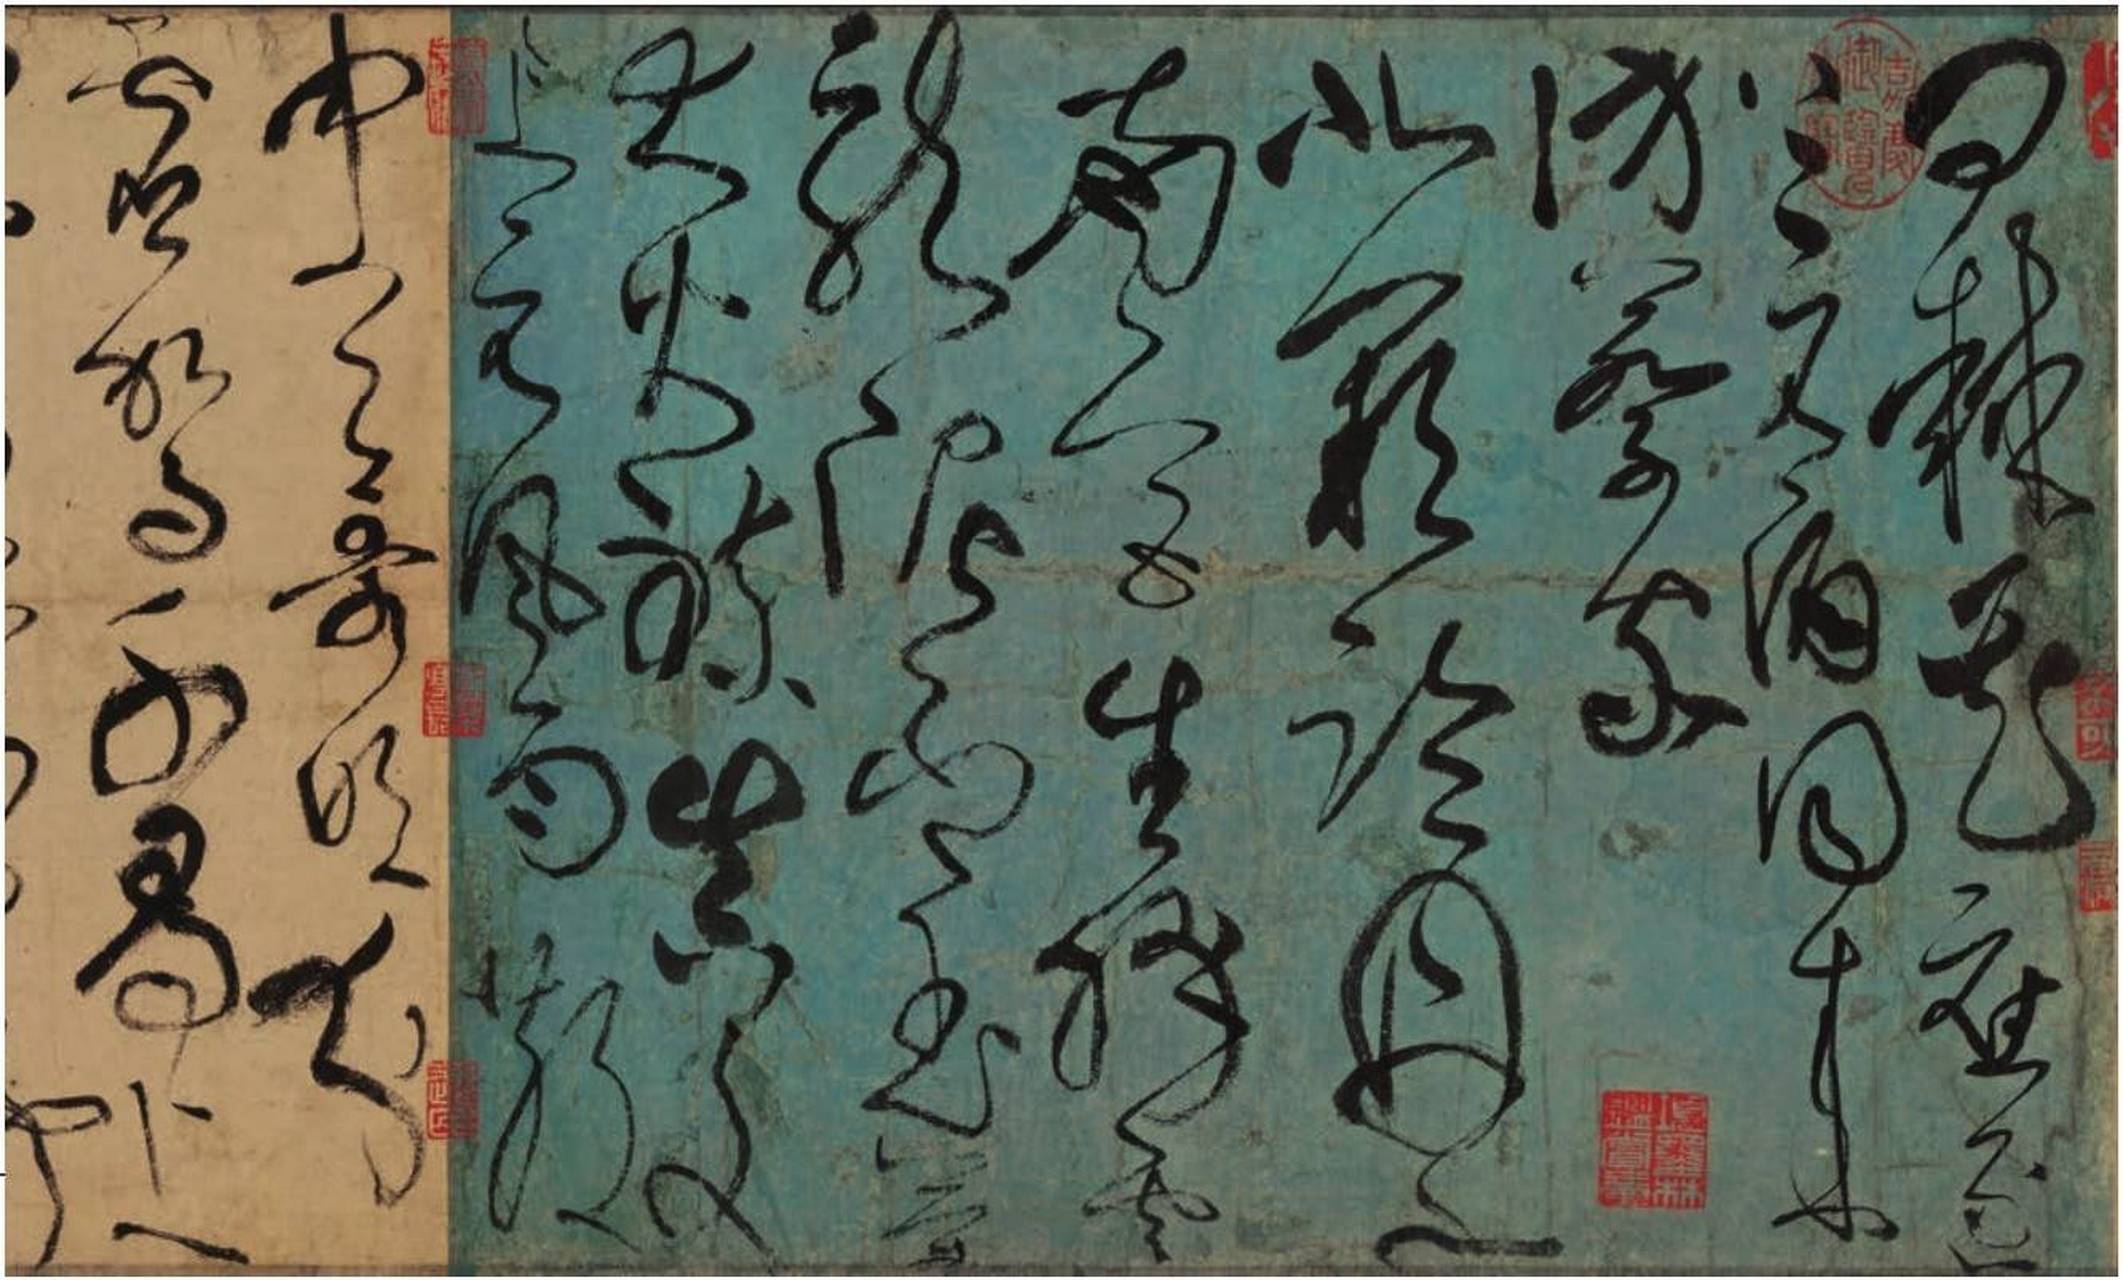 問棘花應逐
上元酒同來
訪蔡家
北闕臨丹水
南宮生絳雲
龍泥印玉策
大火煉真文
上元風雨散
中天哥吹分
虛駕千尋上